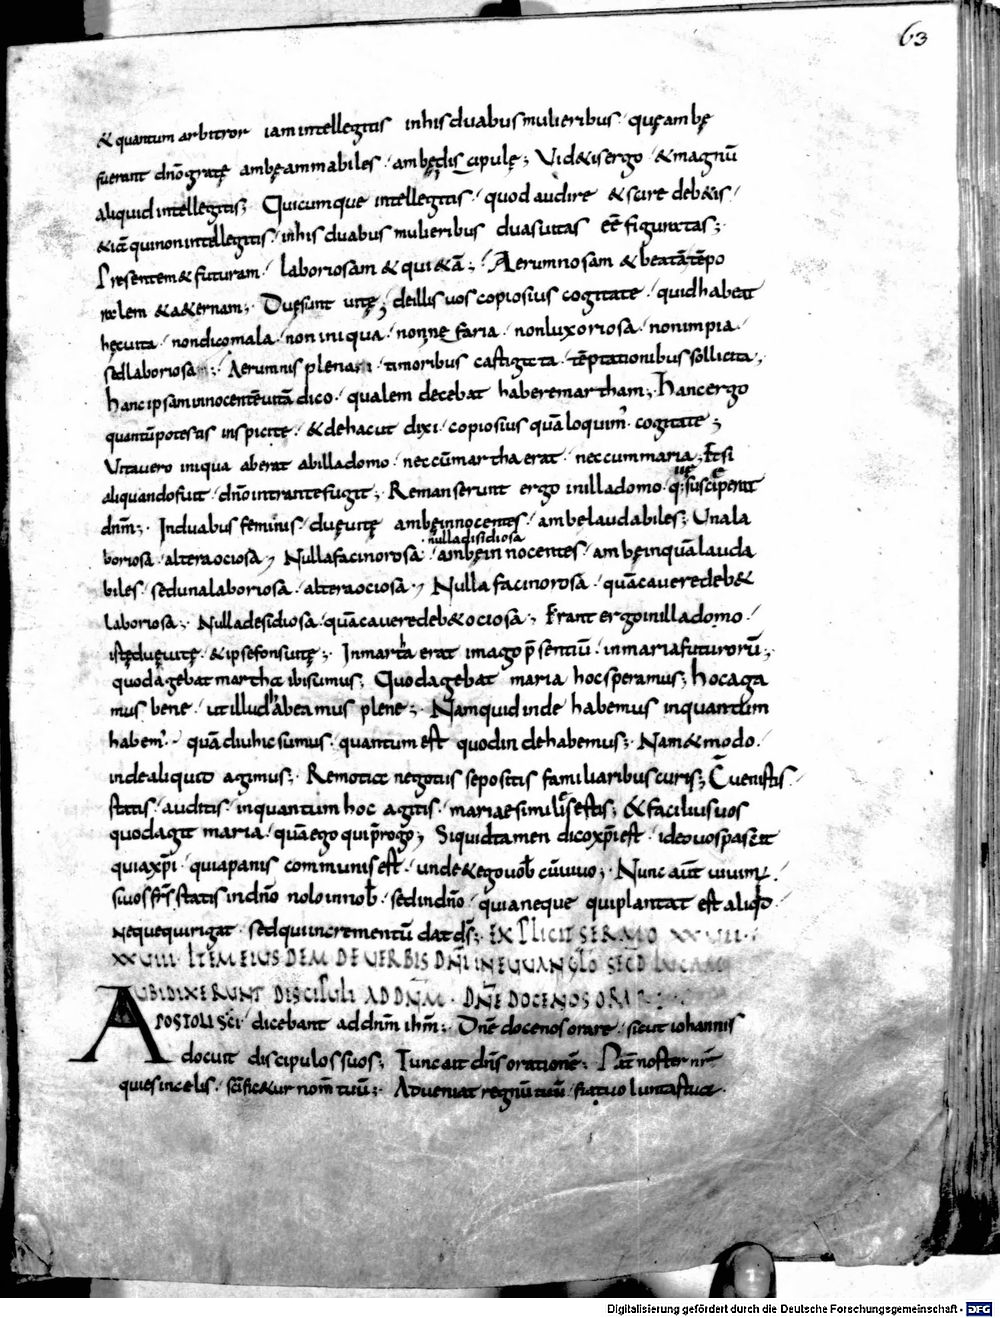 63
& quantum arbitror iam intellegitis inhis duabus mulieribus quę ambę
fuerant dn̄o gratę ambę ammabiles ambę discipulę; Vid&is ergo & magnū
aliquid intellegitis; Quicumque intellegitis quod audire & scire deb&is
&iā qui non intellegitis inhis duabus mulieribus duas uitas eē figuratas;
Presentem & futuram laboriosam & qui&ā; Aerumnosam & beatā tēpo
ralem & a&ernam; Duę sunt uitę; deillis uos copiosius cogitate quid habeat
hęc uita non dico mala non iniqua non nefaria non luxoriosa non impia
sed laboriosa; Aerumnis plena timoribus castigata tēptationibus sollicita;
hanc ipsam innocentē uitā dico qualem decebat habere martham; hanc ergo
quantū potestis inspicite & dehac ut dixi copiosius quā loquim' cogitate;
Vita uero iniqua aberat abilla domo nec cū martha erat nec cum maria; Et si
aliquando fuit dn̄o intrante fugit; Remanserunt ergo inilla domo q; susceperat
dnm̄; Induabus feminis duę uitę ambę innocentes ambe laudabiles; Una la
nulla disidiosa
boriosa altera ociosa; Nulla facinorosa ambę innocentes ambę inquā lauda
biles sed una laboriosa altera ociosa; Nulla facinorosa quā cauere deb&
laboriosa; Nulla desidiosa quā cauere deb& ociosa; Erant ergo inilla domo
istę duę uitę & ipse fons uitę; Inmarta erat imago p̄sentiū inmaria futurorū;
quod agebat martha ibi sumus; Quod agebat maria hoc speramus; hoc aga
mus bene ut illud habeamus plene; Nam quid inde habemus inquantum
habem' quā diu hic sumus quantum est quod inde habemus; Nam & modo
inde aliquid agimus; Remotis negotiis sepositis familiaribus curis; Cuenistis
statis auditis inquantum hoc agitis mariae similes estis; & facilius uos
quod agit maria quā ego qui p̄rogo; Si quid tamen dico xp̄i est ideo uos pascit
quia xp̄i quia panis communis est unde & ego uob cū uiuo; Nunc aūt uiuim;
si uos fr̄s statis in dn̄o nolo in nob̄ sed in dn̄o quia neque qui plantat est aliqd
neque qui rigat sed qui incrementū dat ds̄; EXPLICIT SERMO XXVIII
XXVIIII ITEM EIUSDEM DE VERBIS DN̄I IN EVANGLO SECD LUCAM
UBI DIXERUNT DISCIPULI AD DN̄M DN̄E DOCE NOS ORARE
APOSTOLI SCI dicebant ad dnm̄ ihm̄; Dn̄e doce nos orare sicut iohannis
docuit discipulos suos; Tunc ait dn̄s orationē; Pat̄ noster
qui es in celis scīfic&ur nom̄ tuū; Adueniat regnū tuū fiat uoluntas tua

Digitalisierung gefördert durch die Deutsche Forschungsgemeinschaft - DFG